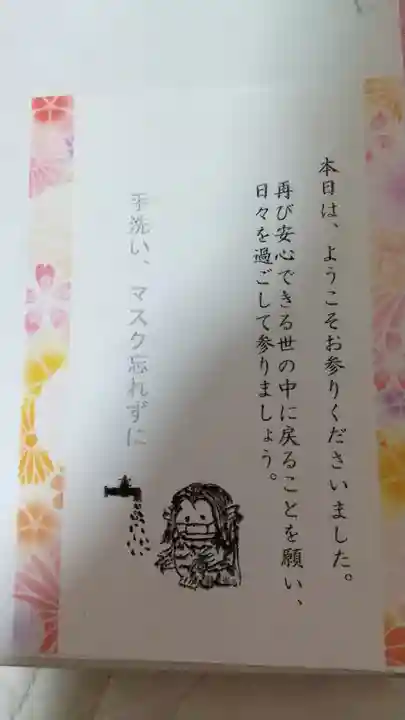 本日は、ようこそお参りくださいました。
再び安心できる世の中に戻ることを願い、
日々を過ごして参りましょう。
手洗い、マスク忘れずに